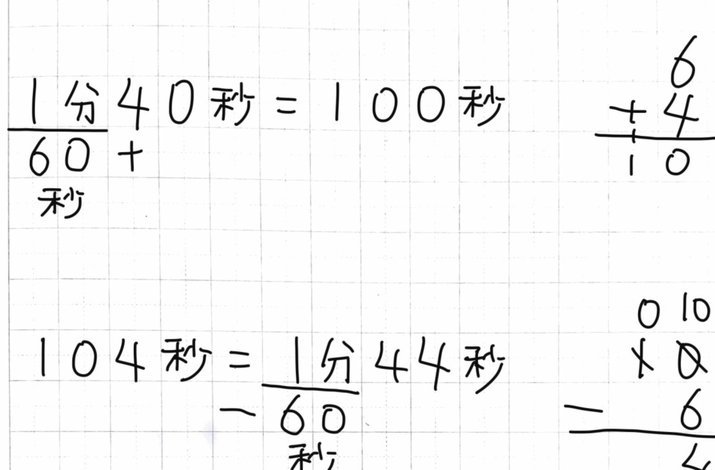 1分40秒=100秒
60+
秒
6
+4
10
104秒=1分44秒
-60
秒
0 10
10
- 6
4